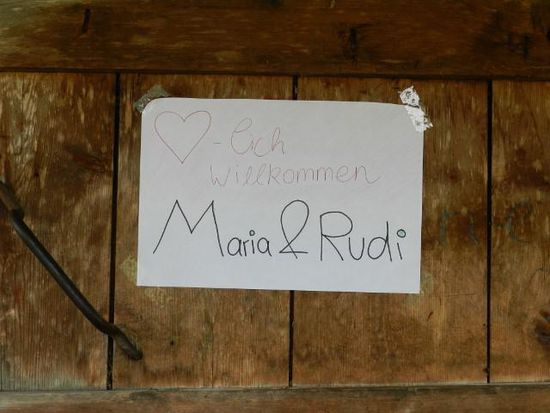 ♡-lich
Willkommen
Maria & Rudi